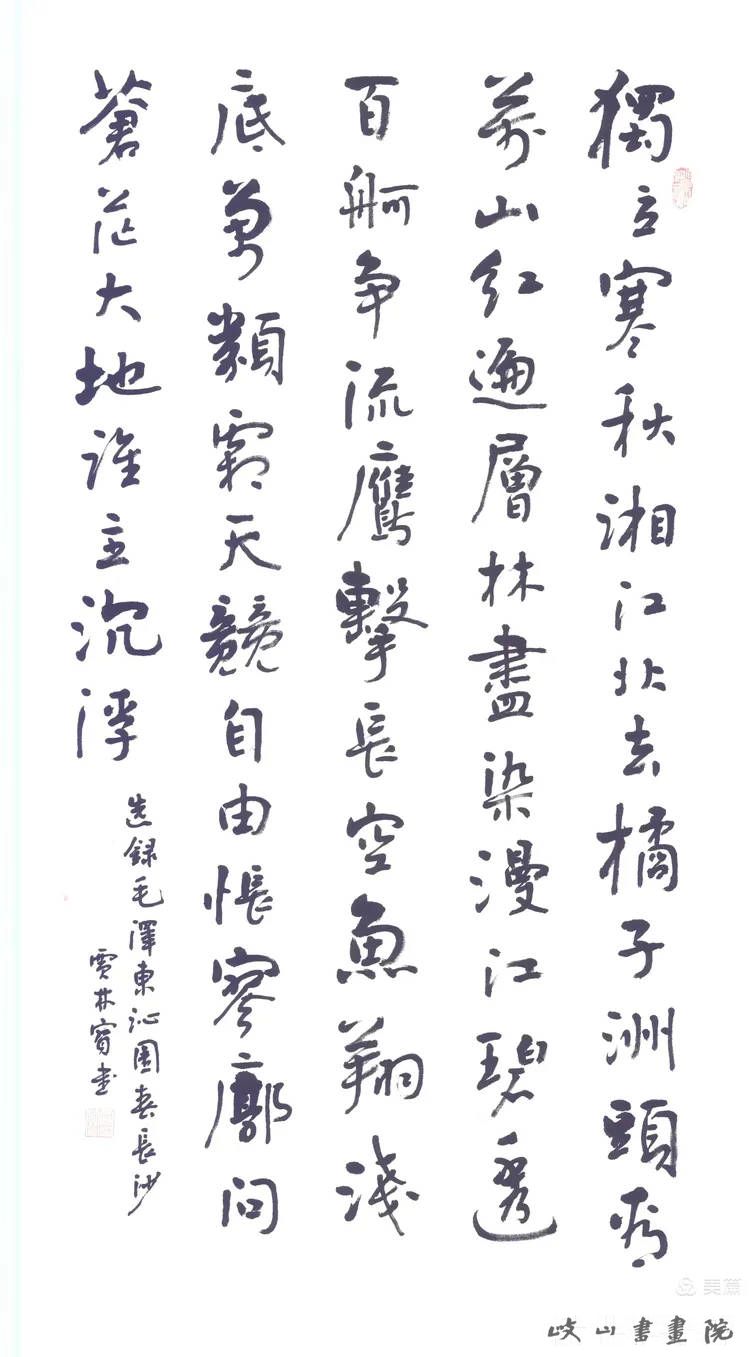 獨立寒秋湘江北去橘子洲頭看
萬山紅遍層林盡染漫江碧透
百舸争流鷹擊長空魚翔淺
底萬類霜天競自由悵寥廓問
蒼茫大地誰主沉浮
选録毛澤東沁園春長沙
賈林寶書
美篇
岐山書畫院